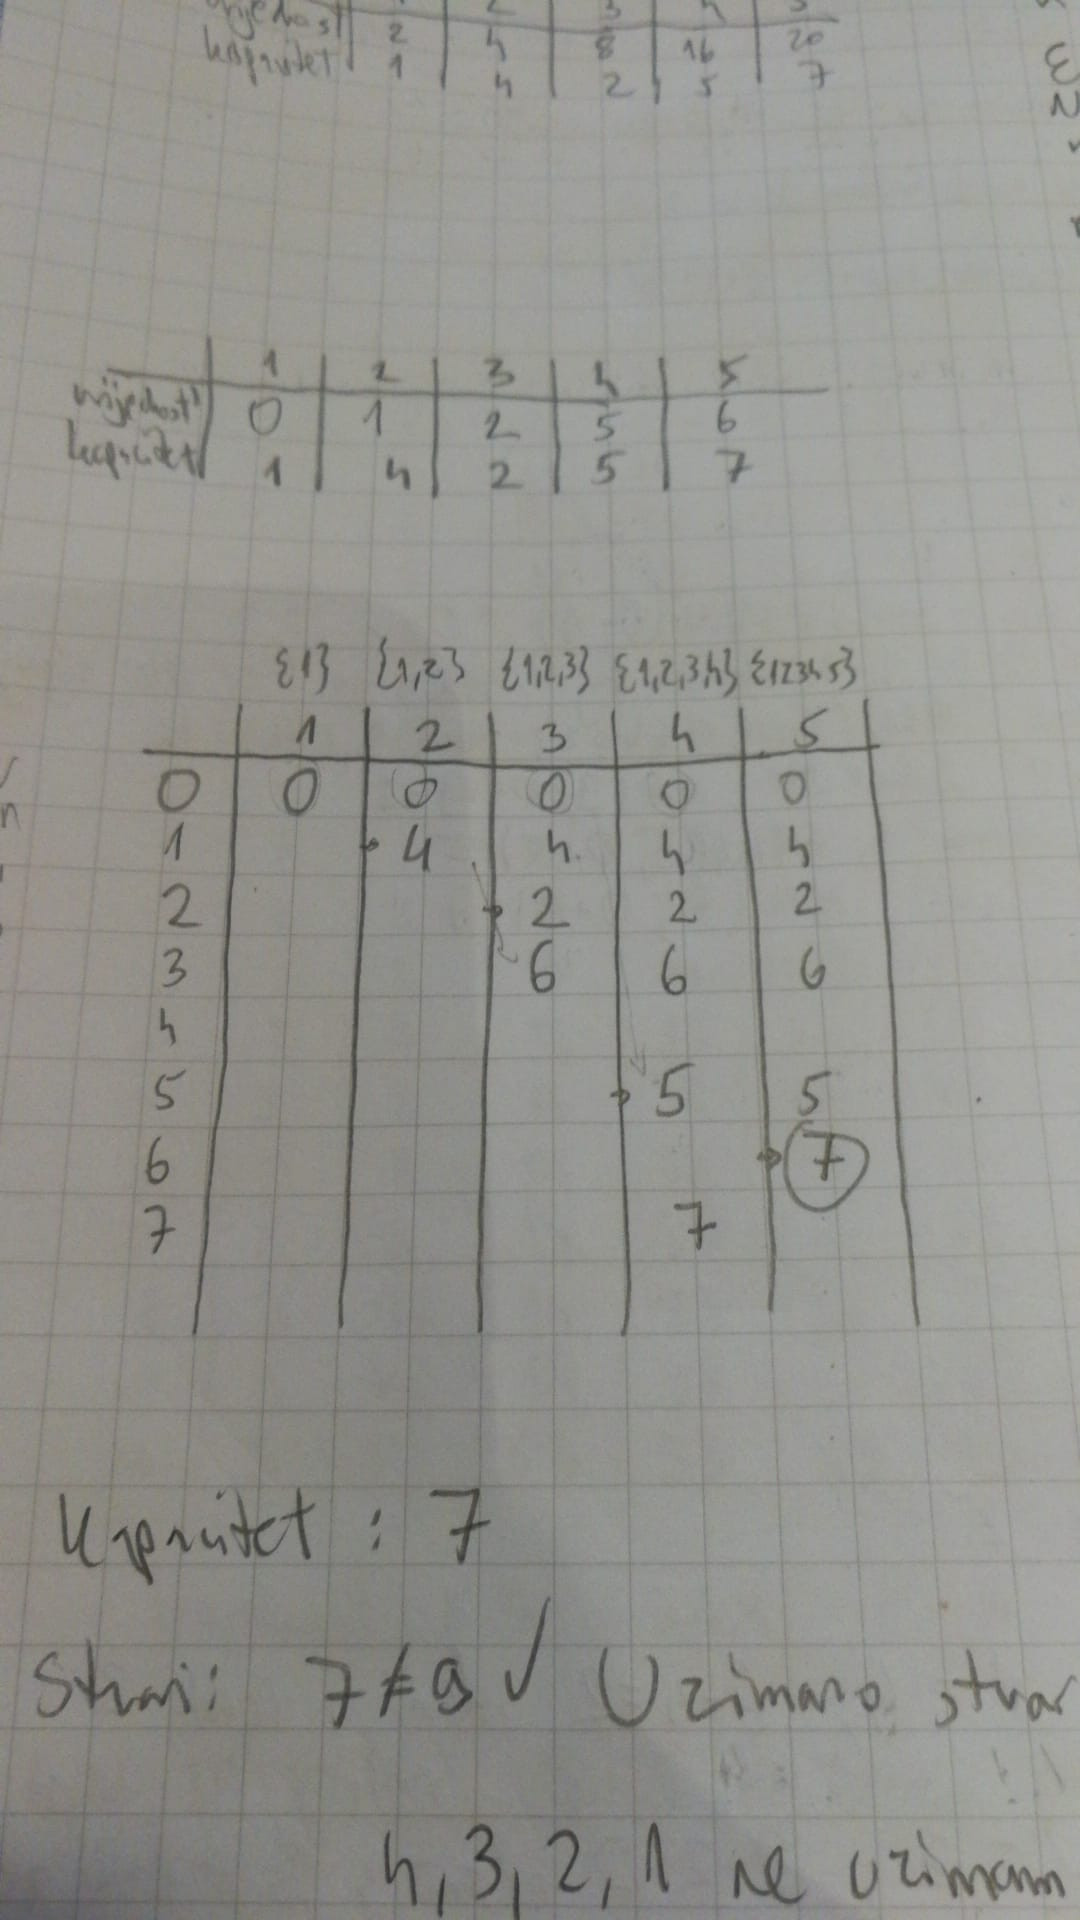 1 2 3 4 5
vrijednost 2 4 8 16 20
kapacitet 1 4 2 5 7
1 2 3 4 5
vrijednost 0 1 2 5 6
kapacitet 1 4 2 5 7
{1} {1,2} {1,2,3} {1,2,3,4} {12345}
1 2 3 4 5
0 0 0 0 0 0
1 4 4 4 4
2 2 2 2
3 6 6 6
4
5 5 5
6 7
7 7
Kapacitet : 7
Stvari: 7≠ ✓ Uzimamo stvar
4, 3, 2, 1 ne uzimam